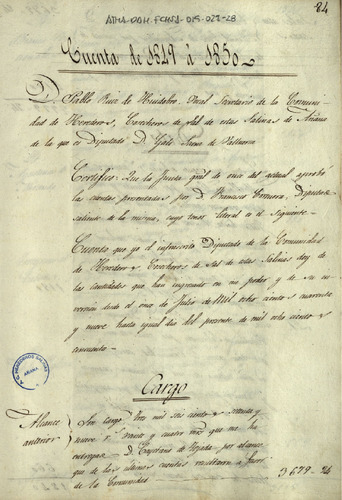 ATHA-DGH-FCHSA-015-029-28
84
Cuenta de 1849 á 1850
D. Pablo Ruiz de Huidobro Vocal Secretario de la Comuni-
dad de Herederos, Cosecheros de sal de estas Salinas de Añana
de la que es Diputado D.
Certifico: Que la Junta gral de once del actual aprobó
las cuentas presentadas por D. Francisco Diputado
saliente de la misma, cuyo tenor literal es el siguiente
Cuenta que yo el infrascrito Diputado de la Comunidad
de Herederos y Cosecheros de Sal de estas Salinas doy de
las cantidades que han ingresado en mi poder y de su
inversión desde el once de Julio de Mil ocho cientos cuarenta
y nueve hasta igual dia del presente de mil ocho cientos
cincuenta
Cargo
Alcance anterior
Son cargo tres mil seis cientos setenta y
nueve r. vellon y mrs que me ha
D. Cayetano de Tejada por alcance
que de las ultimas cuentas resultaron a favor
de la Comunidad
3679 - 24
ANANA